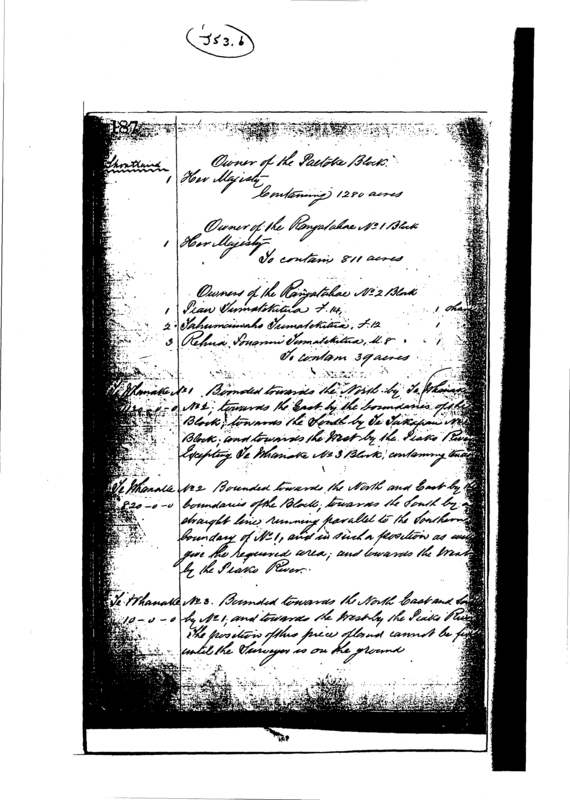 J53.b
187
Shortland
Owner of the Paeloka Block.
1 Her Majesty
Containing 1280 acres
Owner of the Rangatahae No 1 Block
1 Her Majesty
To contain 811 acres
Owners of the Rangatahae No 2 Block
1 F. 14, 1
2 Tumatoketua, F. 12 1
3 Rehua, Tumatoketua, M. 8 1
To contain 39 acres
Te Whanake No 1. Bounded towards the North by Te Whanake
No 2, towards the East by the boundaries of the
Block, towards the South by Te
Block, and towards the West by the Piako River
Excepting Te Whanake No 3 Block, containing
Te Whanake No 2 Bounded towards the North and East by the
820-0-0 boundaries of the Block, towards the South by a
straight line running parallel to the Southern
boundary of No 1, and in such a position as will
give the required area; and towards the West
by the Piako River.
Te Whanake No 3. Bounded towards the North East and
10-0-0 by No 1, and towards the West by the Piako River
The position of this piece of land cannot be
until the Surveyor is on the ground